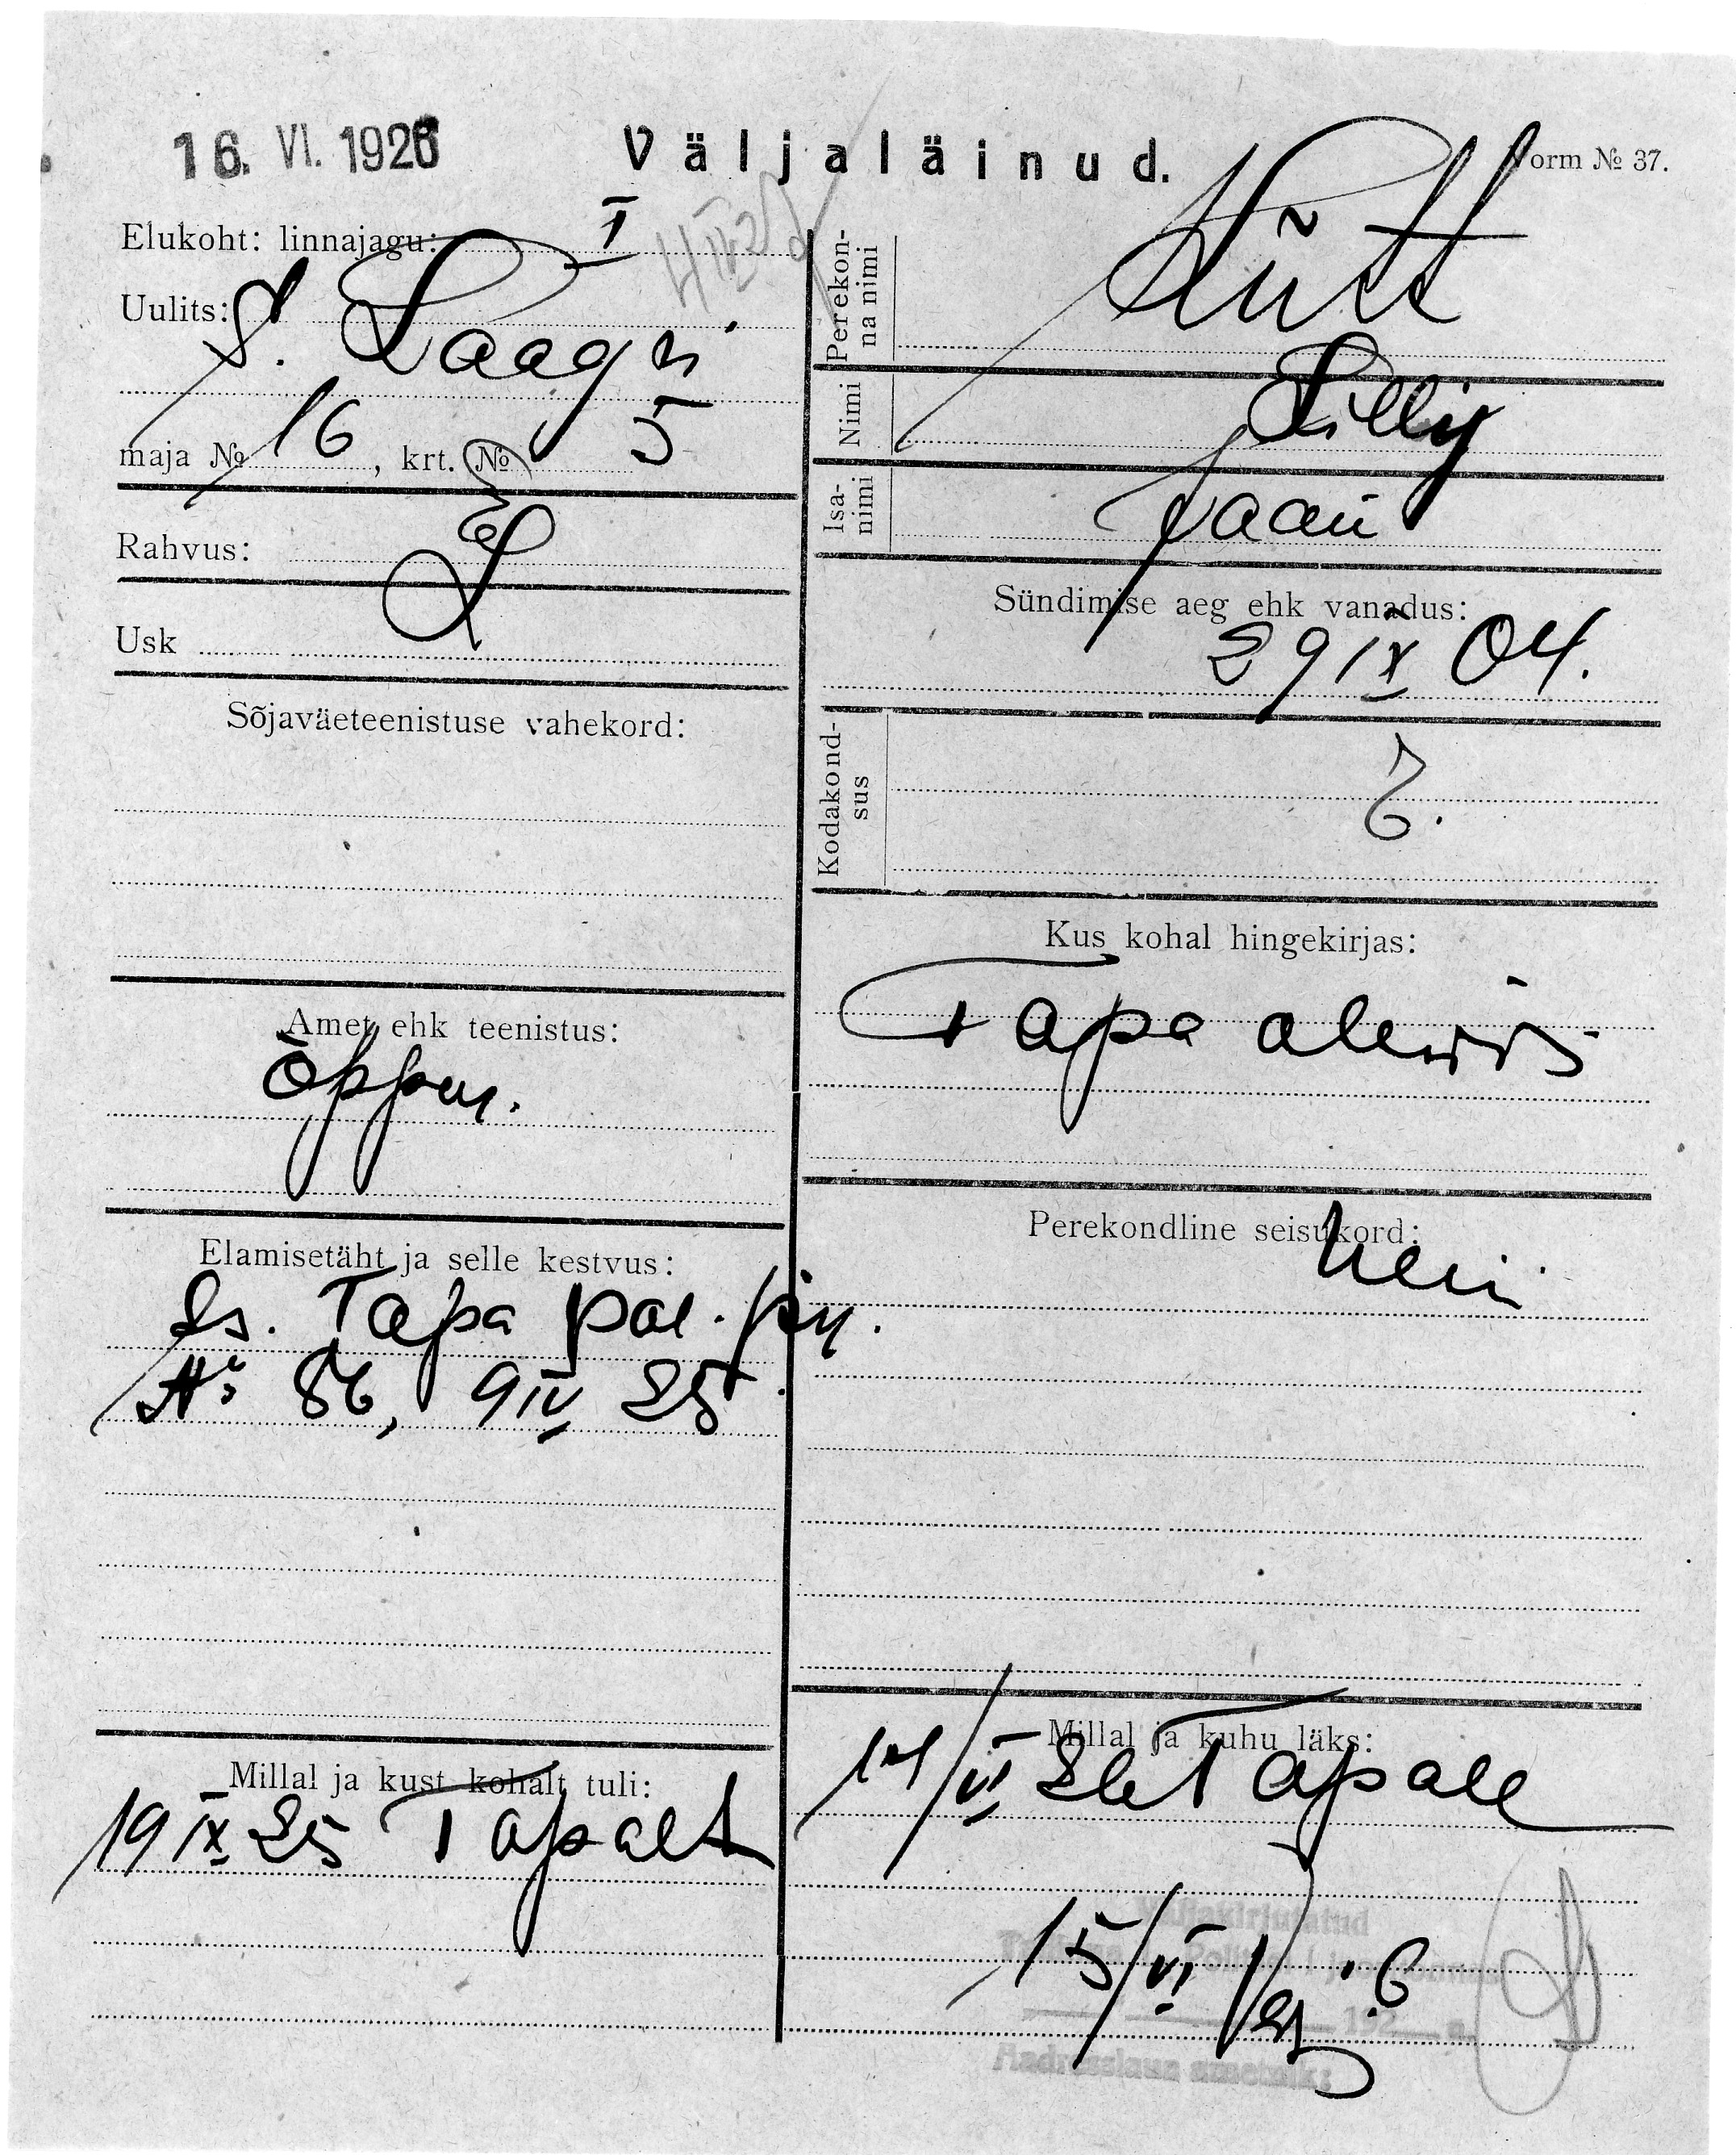 16. VI. 1926
Väljaläinud.
Vorm № 37.
Elukoht: linnajagu: I
Uulits: S. Laagri
maja № 16, krt. № 5
Rahvus: E
Usk L
Sõjaväeteenistuse vahekord:
Amet ehk teenistus:
Õppur.
Elamisetäht ja selle kestvus:
Is. Tapa pol.
№ 86, 9 IV 25.
Millal ja kust kohalt tuli:
19 IX 25 Tapalt
Perekonna nimi
Nimi Lilly
Isanimi Jaan
Sündimise aeg ehk vanadus:
29 IX 04.
Kodakondsus
Kus kohal hingekirjas:
Tapa alevis
Perekondline seisukord:
Millal ja kuhu läks:
14/VI 26 Tapale
Väljakirjutatud
15/VI
192 a.
Aadresslaua ametnik: